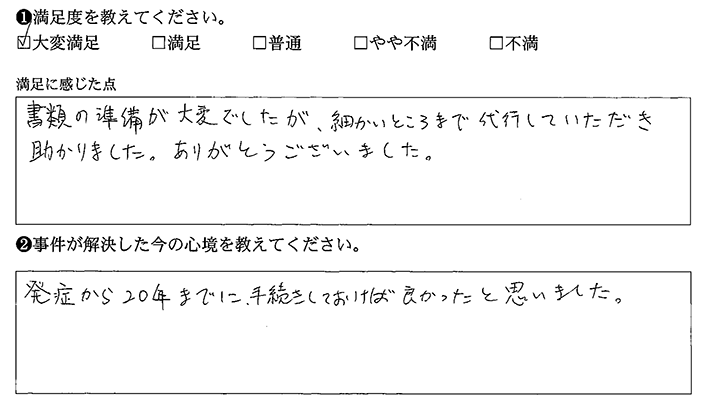 ❶満足度を教えてください。
☑大変満足 □満足 □普通 □やや不満 □不満
満足に感じた点
書類の準備が大変でしたが、細かいところまで代行していただき
助かりました。ありがとうございました。
❷事件が解決した今の心境を教えてください。
発症から20年までに、手続きしておけば良かったと思いました。